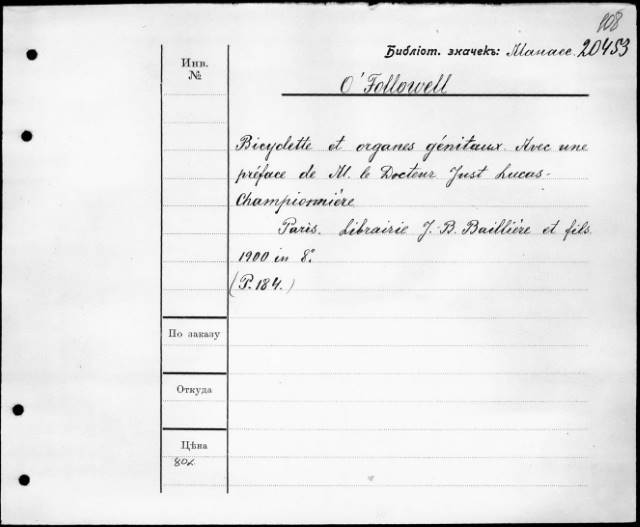 108
Библіот. значекъ: Манасс. 20453
Инв.
№
O'Followell
Bicyclette et organes génitaux. Avec une
préface de M. le Docteur Just Lucas-
Championnière
Paris. Librairie J. B. Baillière et fils.
1900 in 8°.
(P. 184.)
По заказу
Откуда
Цѣна
80к